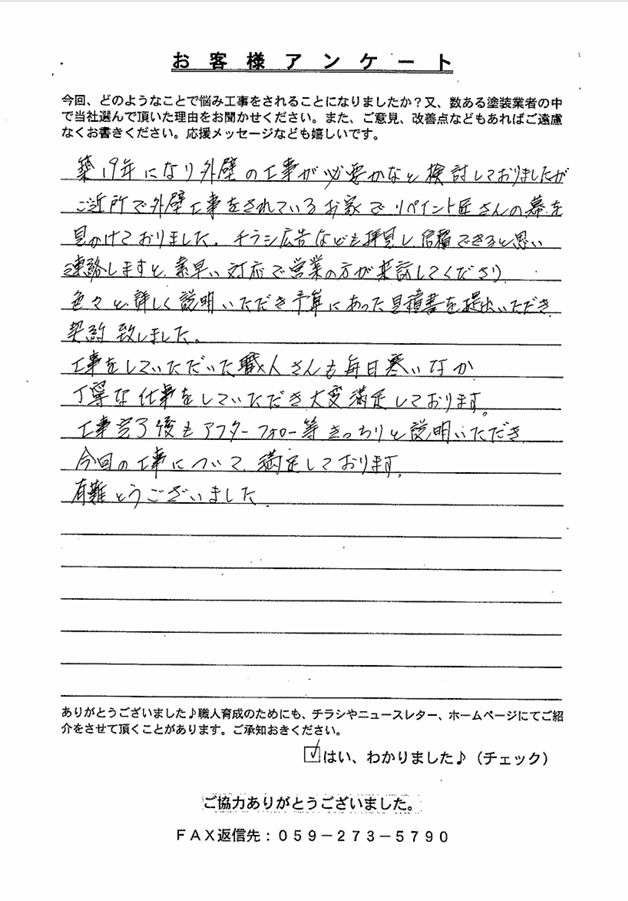 お客様アンケート
今回、どのようなことで悩み工事をされることになりましたか？又、数ある塗装業者の中
で当社選んで頂いた理由をお聞かせください。また、ご意見、改善点などもあればご遠慮
なくお書きください。応援メッセージなども嬉しいです。
築19年になり外壁の工事が必要かなと検討しておりましたが
ご近所で外壁工事をされているお家でリペイント匠さんの幕を
見かけておりました。チラシ広告なども拝見し信頼できると思い
連絡しますと、素早い対応で営業の方が来訪してくださり
色々と詳しく説明いただき予算にあった見積書を提出いただき
契約致しました。
工事をしていただいた職人さんも毎日寒いなか
丁寧な仕事をしていただき大変満足しております。
工事完了後もアフターフォロー等きっちりと説明いただき
今回の工事について満足しております。
有難とうございました。
ありがとうございました♪職人育成のためにも、チラシやニュースレター、ホームページにてご紹
介をさせて頂くことがあります。ご承知おきください。
☑はい、わかりました♪（チェック）
ご協力ありがとうございました。
ＦＡＸ返信先：０５９－２７３－５７９０